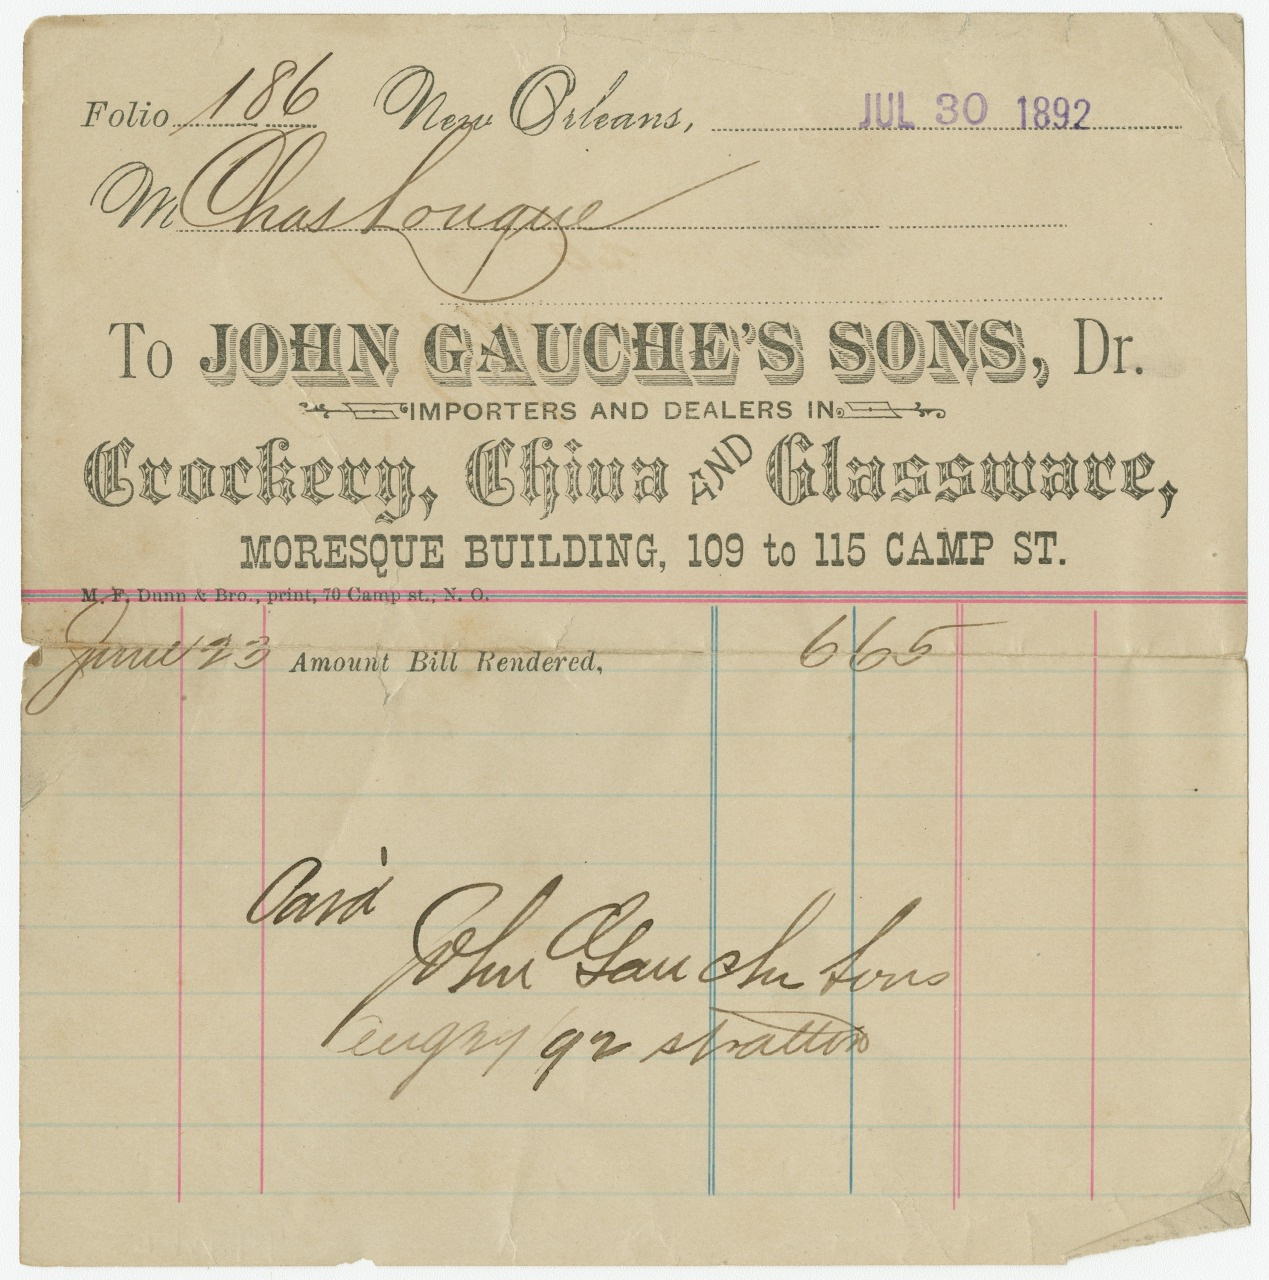 Folio 186 New Orleans, JUL 30 1892
M Chas Longue
To JOHN GAUCHE'S SONS, Dr.
IMPORTERS AND DEALERS IN
Crockery, China AND Glassware,
MORESQUE BUILDING, 109 to 115 CAMP ST.
M. F. Dunn & Bro., print, 70 Camp st., N. O.
June 23 Amount Bill Rendered, 6 65
Paid
John Gauche Sons
/92 Stratton